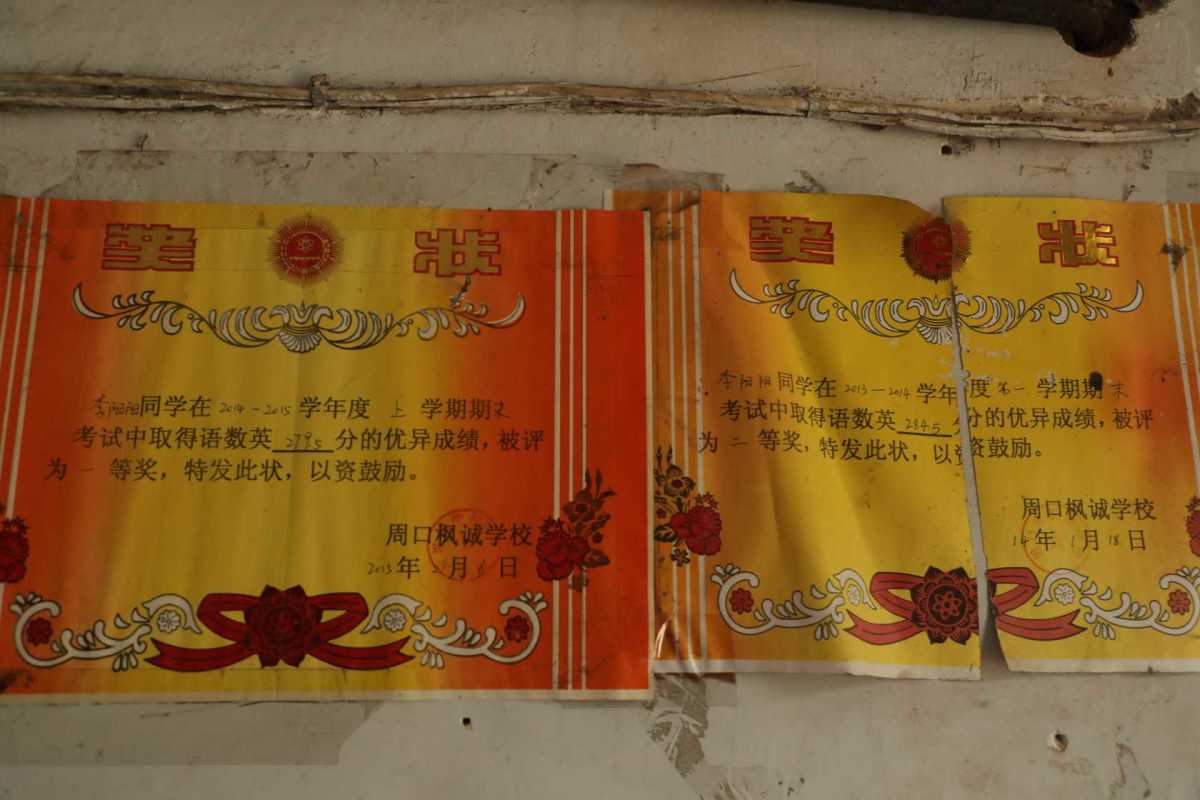 奖 状
李阳阳同学在 2014-2015 学年度 上 学期期末
考试中取得语数英 279.5 分的优异成绩，被评
为 一 等奖，特发此状，以资鼓励。
周口枫诚学校
年 月 日
奖 状
李阳阳同学在 2013-2014 学年度 第一 学期期末
考试中取得语数英 284.5 分的优异成绩，被评
为 二 等奖，特发此状，以资鼓励。
周口枫诚学校
14 年 1 月 18 日